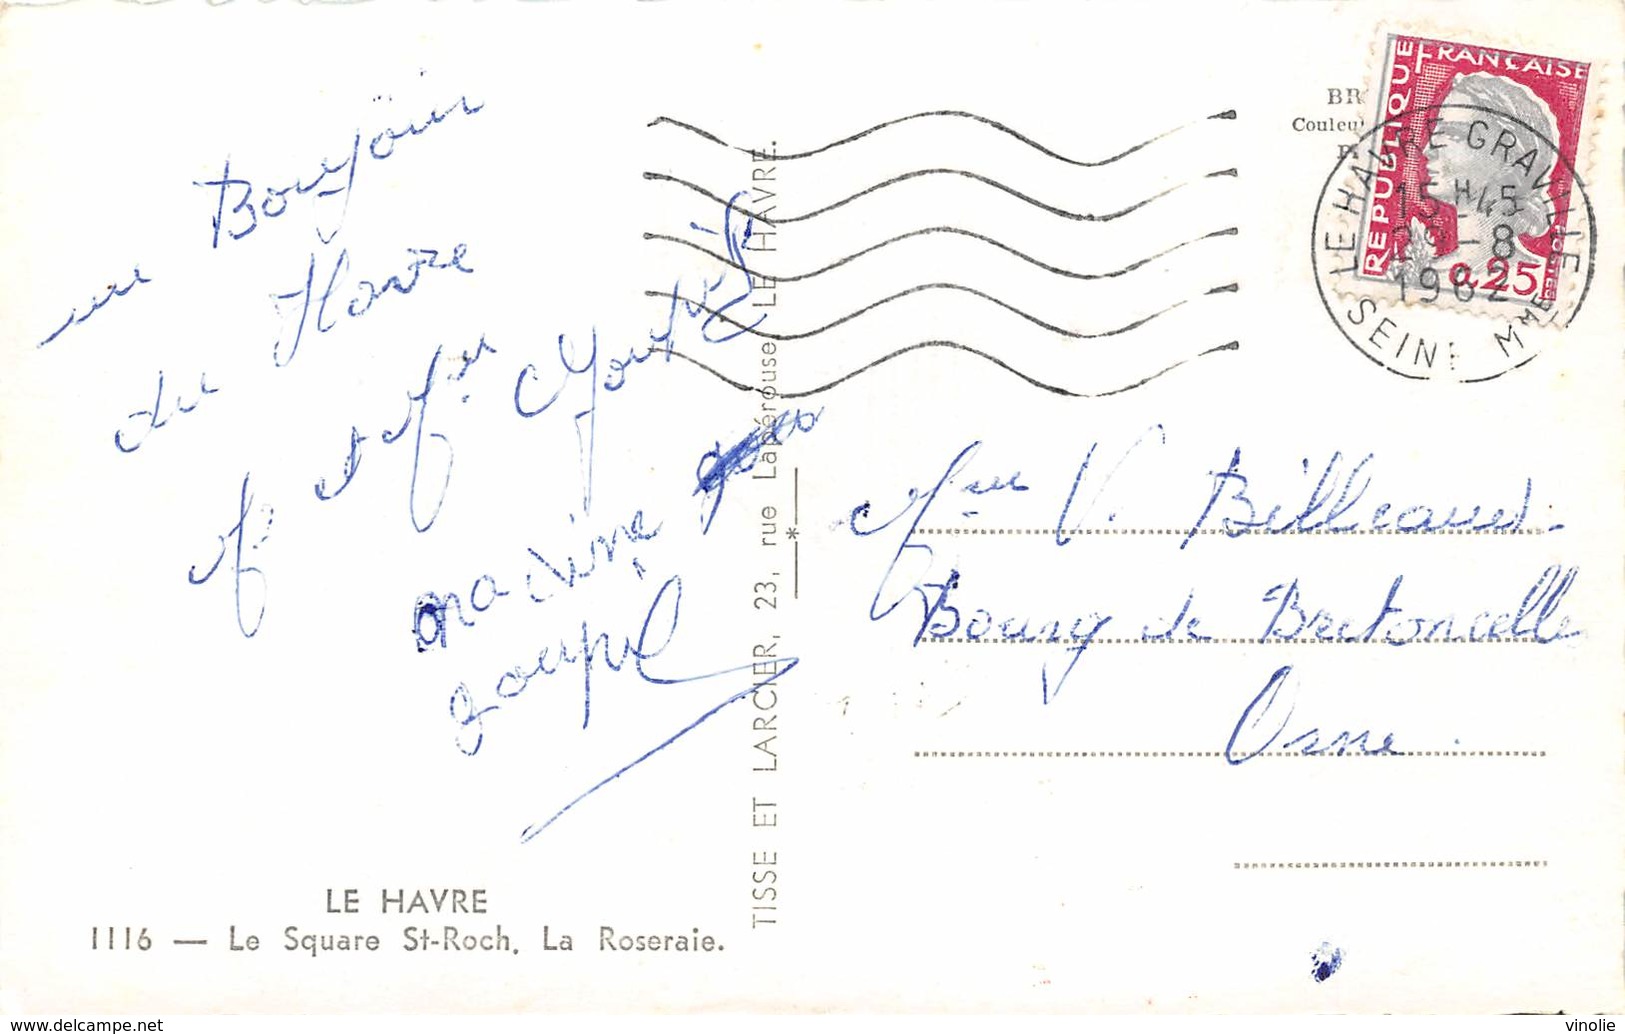 un Bonjour
du Havre
M. et Mme
nadine
goupil
LE HAVRE
1116 — Le Square St-Roch, La Roseraie.
TISSE ET LARCIER, 23, rue Lapérouse, LE HAVRE.
*
BR
Couleu
REPUBLIQUE FRANÇAISE
0,25
LE HAVRE-GRAVILLE
15H45
29-8
1962
SEINE MME
Mme V. Billeaud.
Bourg de Bretoncelle
Orne.
www.delcampe.net
vinolie